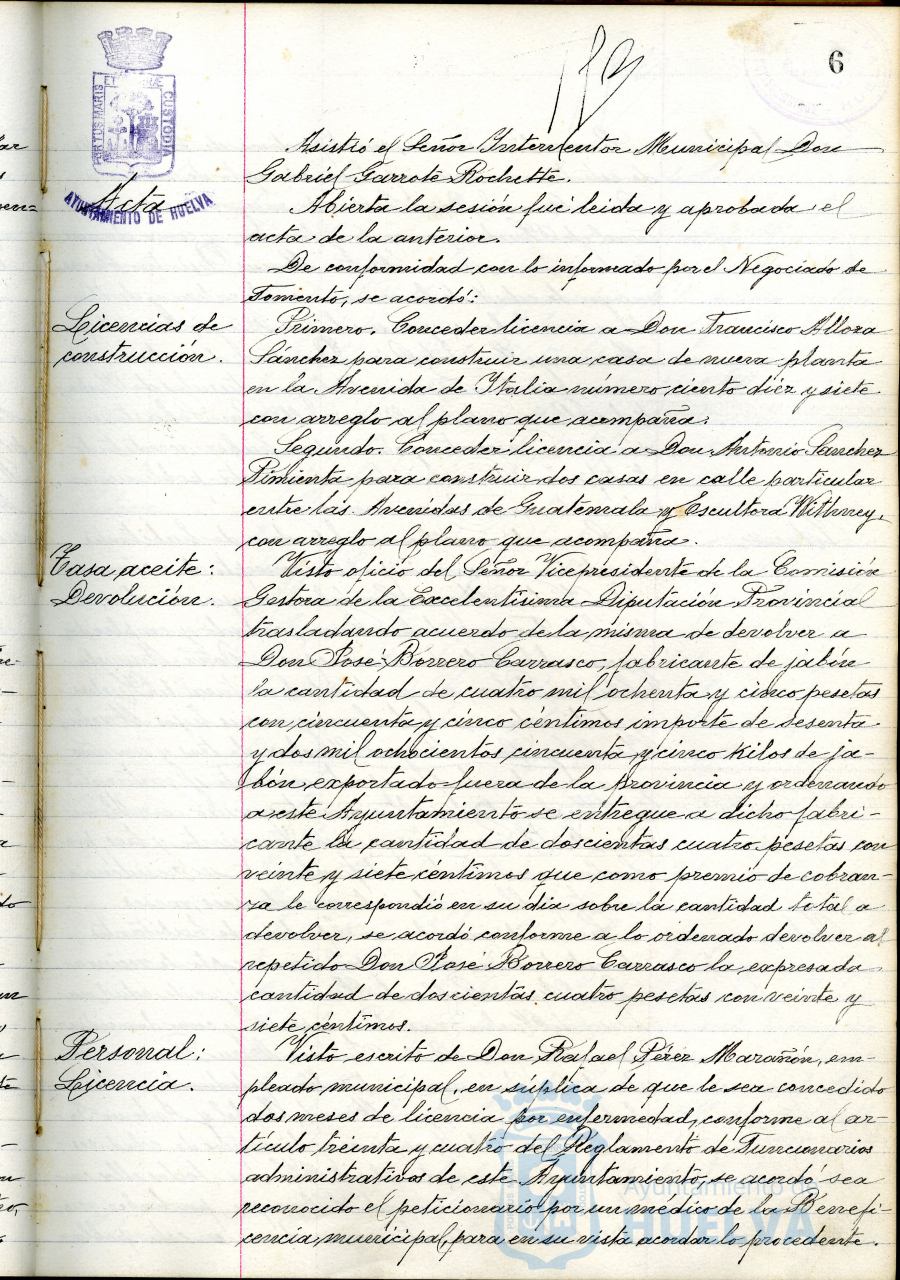 6
PORTUS MARIS ET CUSTODIA
AYUNTAMIENTO DE HUELVA
Asistió el Señor Interventor Municipal Don
Gabriel Garrote Rochette.
Acta
Abierta la sesión fué leida y aprobada el
acta de la anterior.
De conformidad con lo informado por el Negociado de
Fomento, se acordó:
Licencias de
construcción.
Primero. Conceder licencia a Don Francisco Alloza
Sánchez para construir una casa de nueva planta
en la Avenida de Italia número ciento diéz y siete
con arreglo al plano que acompaña.
Segundo. Conceder licencia a Don Antonio Sanchez
Pimienta para construir dos casas en calle particular
entre las Avenidas de Guatemala y Escultora Withney,
con arreglo al plano que acompaña.
Tasa aceite:
Devolución.
Visto oficio del Señor Vicepresidente de la Comisión
Gestora de la Excelentísima Diputación Provincial
trasladando acuerdo de la misma de devolver a
Don José Borrero Carrasco, fabricante de jabón
la cantidad de cuatro mil ochenta y cinco pesetas
con cincuenta y cinco céntimos importe de sesenta
y dos mil ochocientos cincuenta y cinco kilos de ja-
bón exportado fuera de la provincia y ordenando
a este Ayuntamiento se entregue a dicho fabri-
cante la cantidad de doscientas cuatro pesetas con
veinte y siete céntimos que como premio de cobran-
za le correspondió en su dia sobre la cantidad total a
devolver, se acordó conforme a lo ordenado devolver al
repetido Don José Borrero Carrasco la expresada
cantidad de doscientas cuatro pesetas con veinte y
siete céntimos.
Personal:
Licencia.
Visto escrito de Don Rafael Pérez Marañón, em-
pleado municipal, en súplica de que le sea concedido
dos meses de licencia por enfermedad, conforme al ar-
tículo treinta y cuatro del Reglamento de Funcionarios
administrativos de este Ayuntamiento, se acordó sea
reconocido el peticionario por un medico de la Benefi-
cencia municipal, para en su vista acordar lo procedente.
Ayuntamiento de
HUELVA